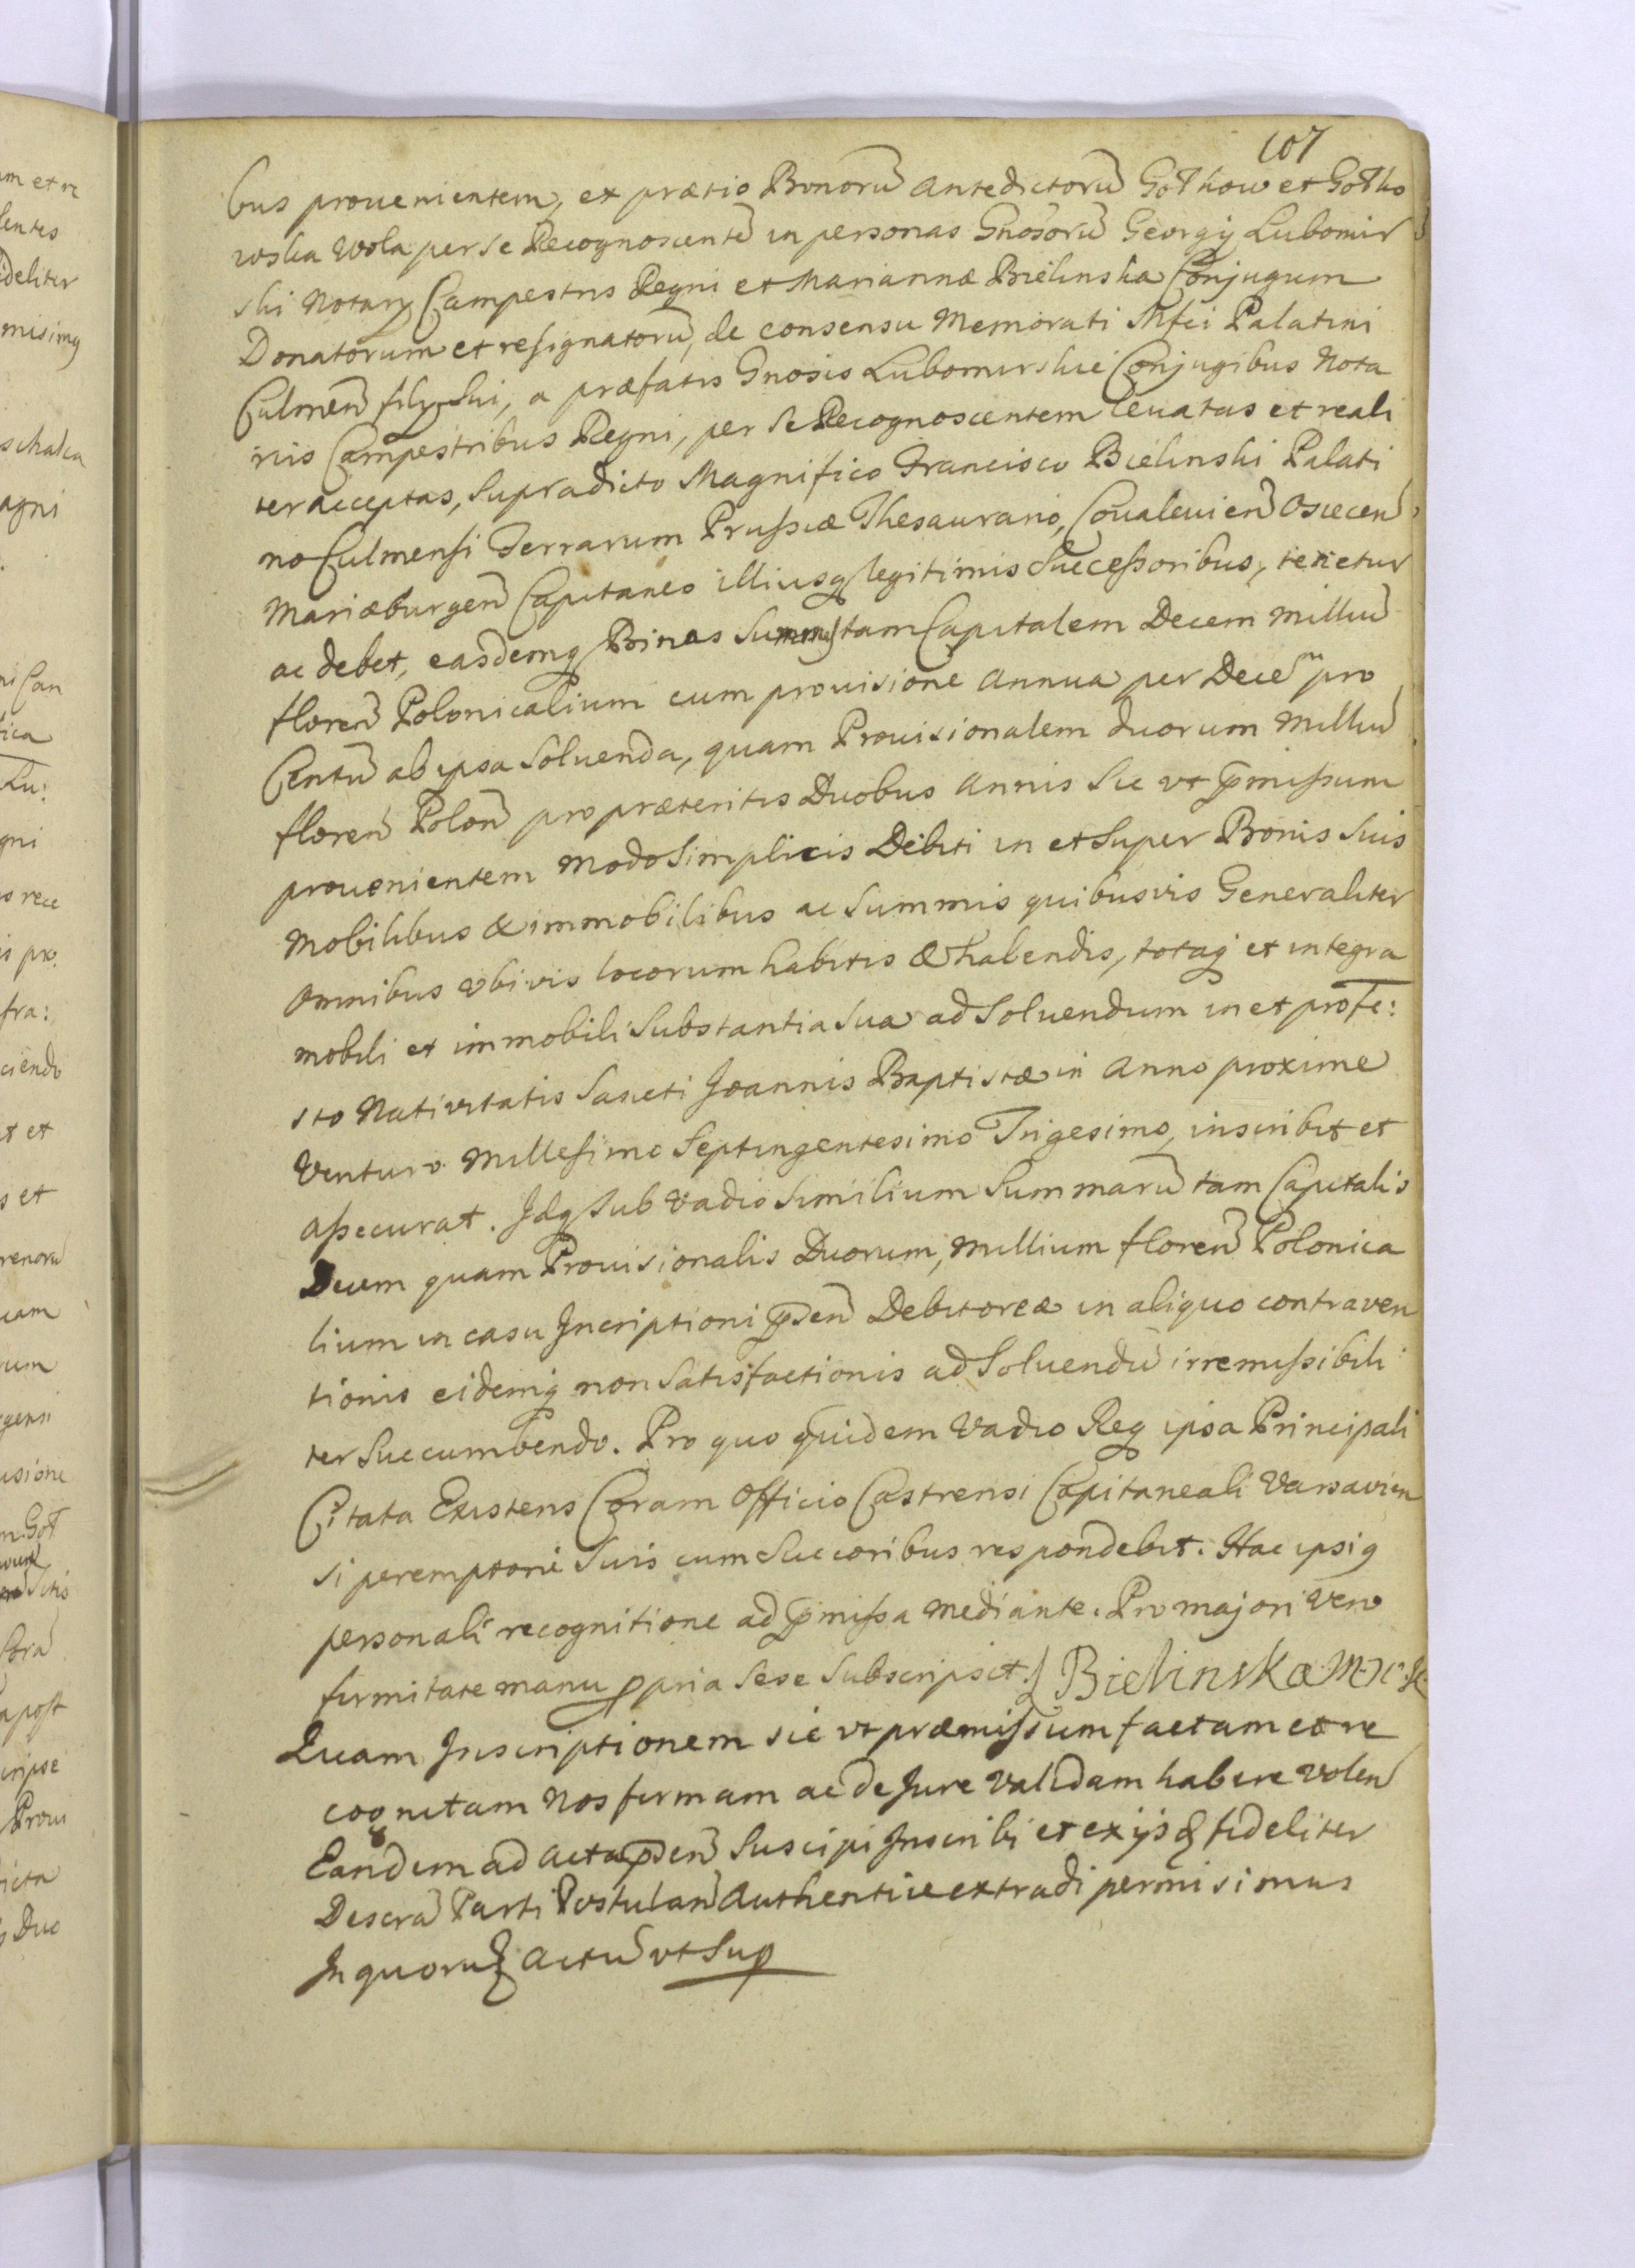 107
bus prouenientem, ex prætio Bonorū Antedictorū Gothow et Gotho
wska Wola per se Recognoscentē in personas Gnosorū Georgij Lubomir
ski Notarij Campestris Regni et Mariannæ Bielinska Conjugum
Donatorum et resignatorū, de consensu Memorati Mfci Palatini
Culmen̄ filij Sui, a præfatis Gnosis Lubomirskie Conjugibus Nota
riis Campestribus Regni, per se Recognoscentem leuatas et reali
ter acceptas, Supradicto Magnifico Francisco Bielinski Palati
no Culmensi Terrarum Prussiæ Thesaurario, Coualeuien̄ Osiecen̄
Mariæburgen̄ Capitaneo illiusq legitimis Successoribus, tenetur
ac debet, easdemq Binas Summas tam Capitalem Decem Milliū
floren̄ Polonicalium cum prouisione Annua per Decem pro
Centū ab ipsa Soluenda, quam Prouisionalem duorum Milliū
floren̄ Polon̄ pro præteritis Duobus Annis Sic vt p̄missum
prouenientem Modo Simplicis Debiti in et Super Bonis Suis
Mobilibus & immobilibus ac Summis quibusvis Generaliter
Omnibus vbivis locorum habitis & habendis, totaq et integra
mobili et immobili Substantia Sua ad Soluendum in et pro fe:
sto Nativitatis Sancti Joannis Baptistæ in Anno proxime
Venturo Millesimo Septingentesimo Trigesimo, inscribit et
assecurat. Idq Sub Vadio Similium Summarū tam Capitalis
Decem quam Prouisionalis Duorum, Millium floren̄ Polonica
lium in casu Incriptioni p̄sen̄ Debitoreæ in aliquo contraven
tionis eidemq non Satisfactionis ad Soluendū irremissibili
ter Succumbendo. Pro quo quidem Vadio Req ipsa Principali
Citata Existens Coram Officio Castrensi Capitaneali Varsavien
si peremptorie Suis cum Succoribus respondebit. Hac ipsiq
personali recognitione ad p̄missa mediante. Pro majori vero
firmitate manu ppria Sese Subscripsit. Bielinska M. N. K.
Quam Inscriptionem sic vt præmissum factam et re
cognitam Nos firmam ac de Jure Validam habere Volen̄
Eandem ad Acta p̄sen̄ Suscipi Inscribi et ex ijsd fideliter
Descra Parti Postulan̄ Authentice extradi permisimus
In quorū Actū vt Sup